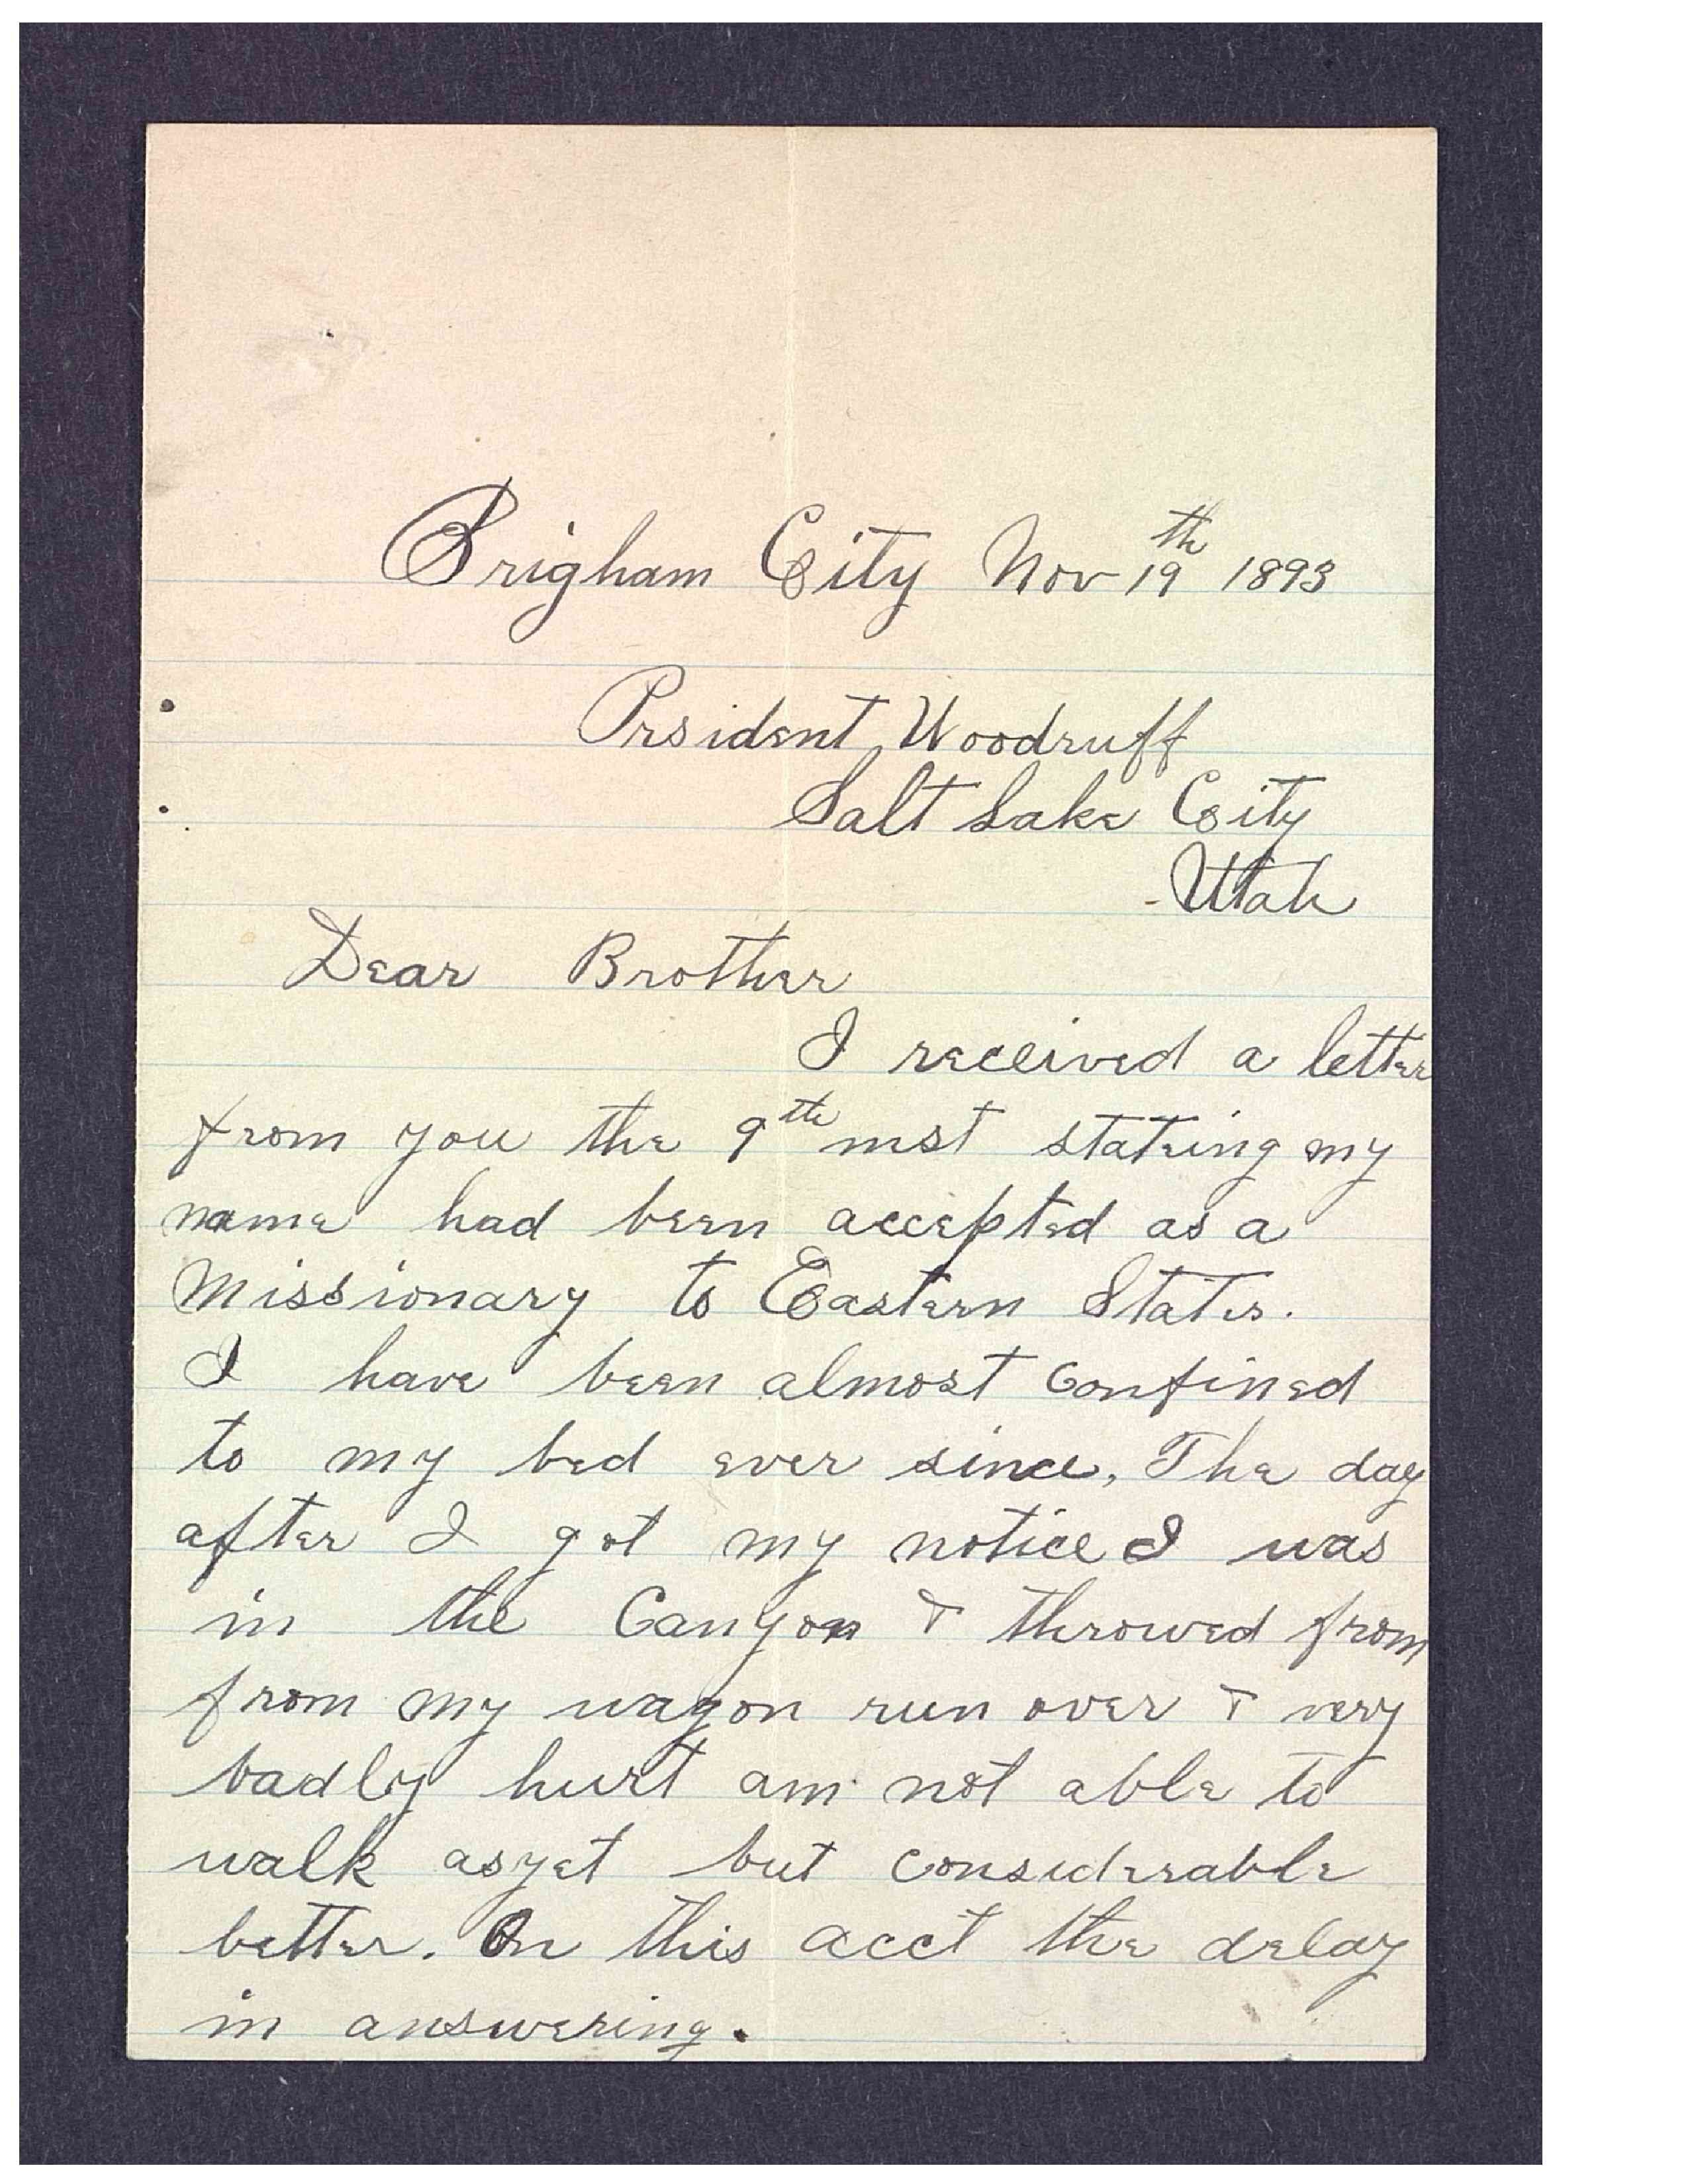 Brigham City Nov 19th 1893
Prsident Woodruff
Salt Lake City
Utah
Dear Brother
I received a letter
from you the 9th inst stateing my
name had been accepted as a
Missionary to Eastern States.
I have been almost confined
to my bed ever since, The day
after I got my notice I was
in the Canyon & throwed from
from my wagon run over & very
badly hurt am not able to
walk as yet but considerable
better. On this acct the delay
in answering.